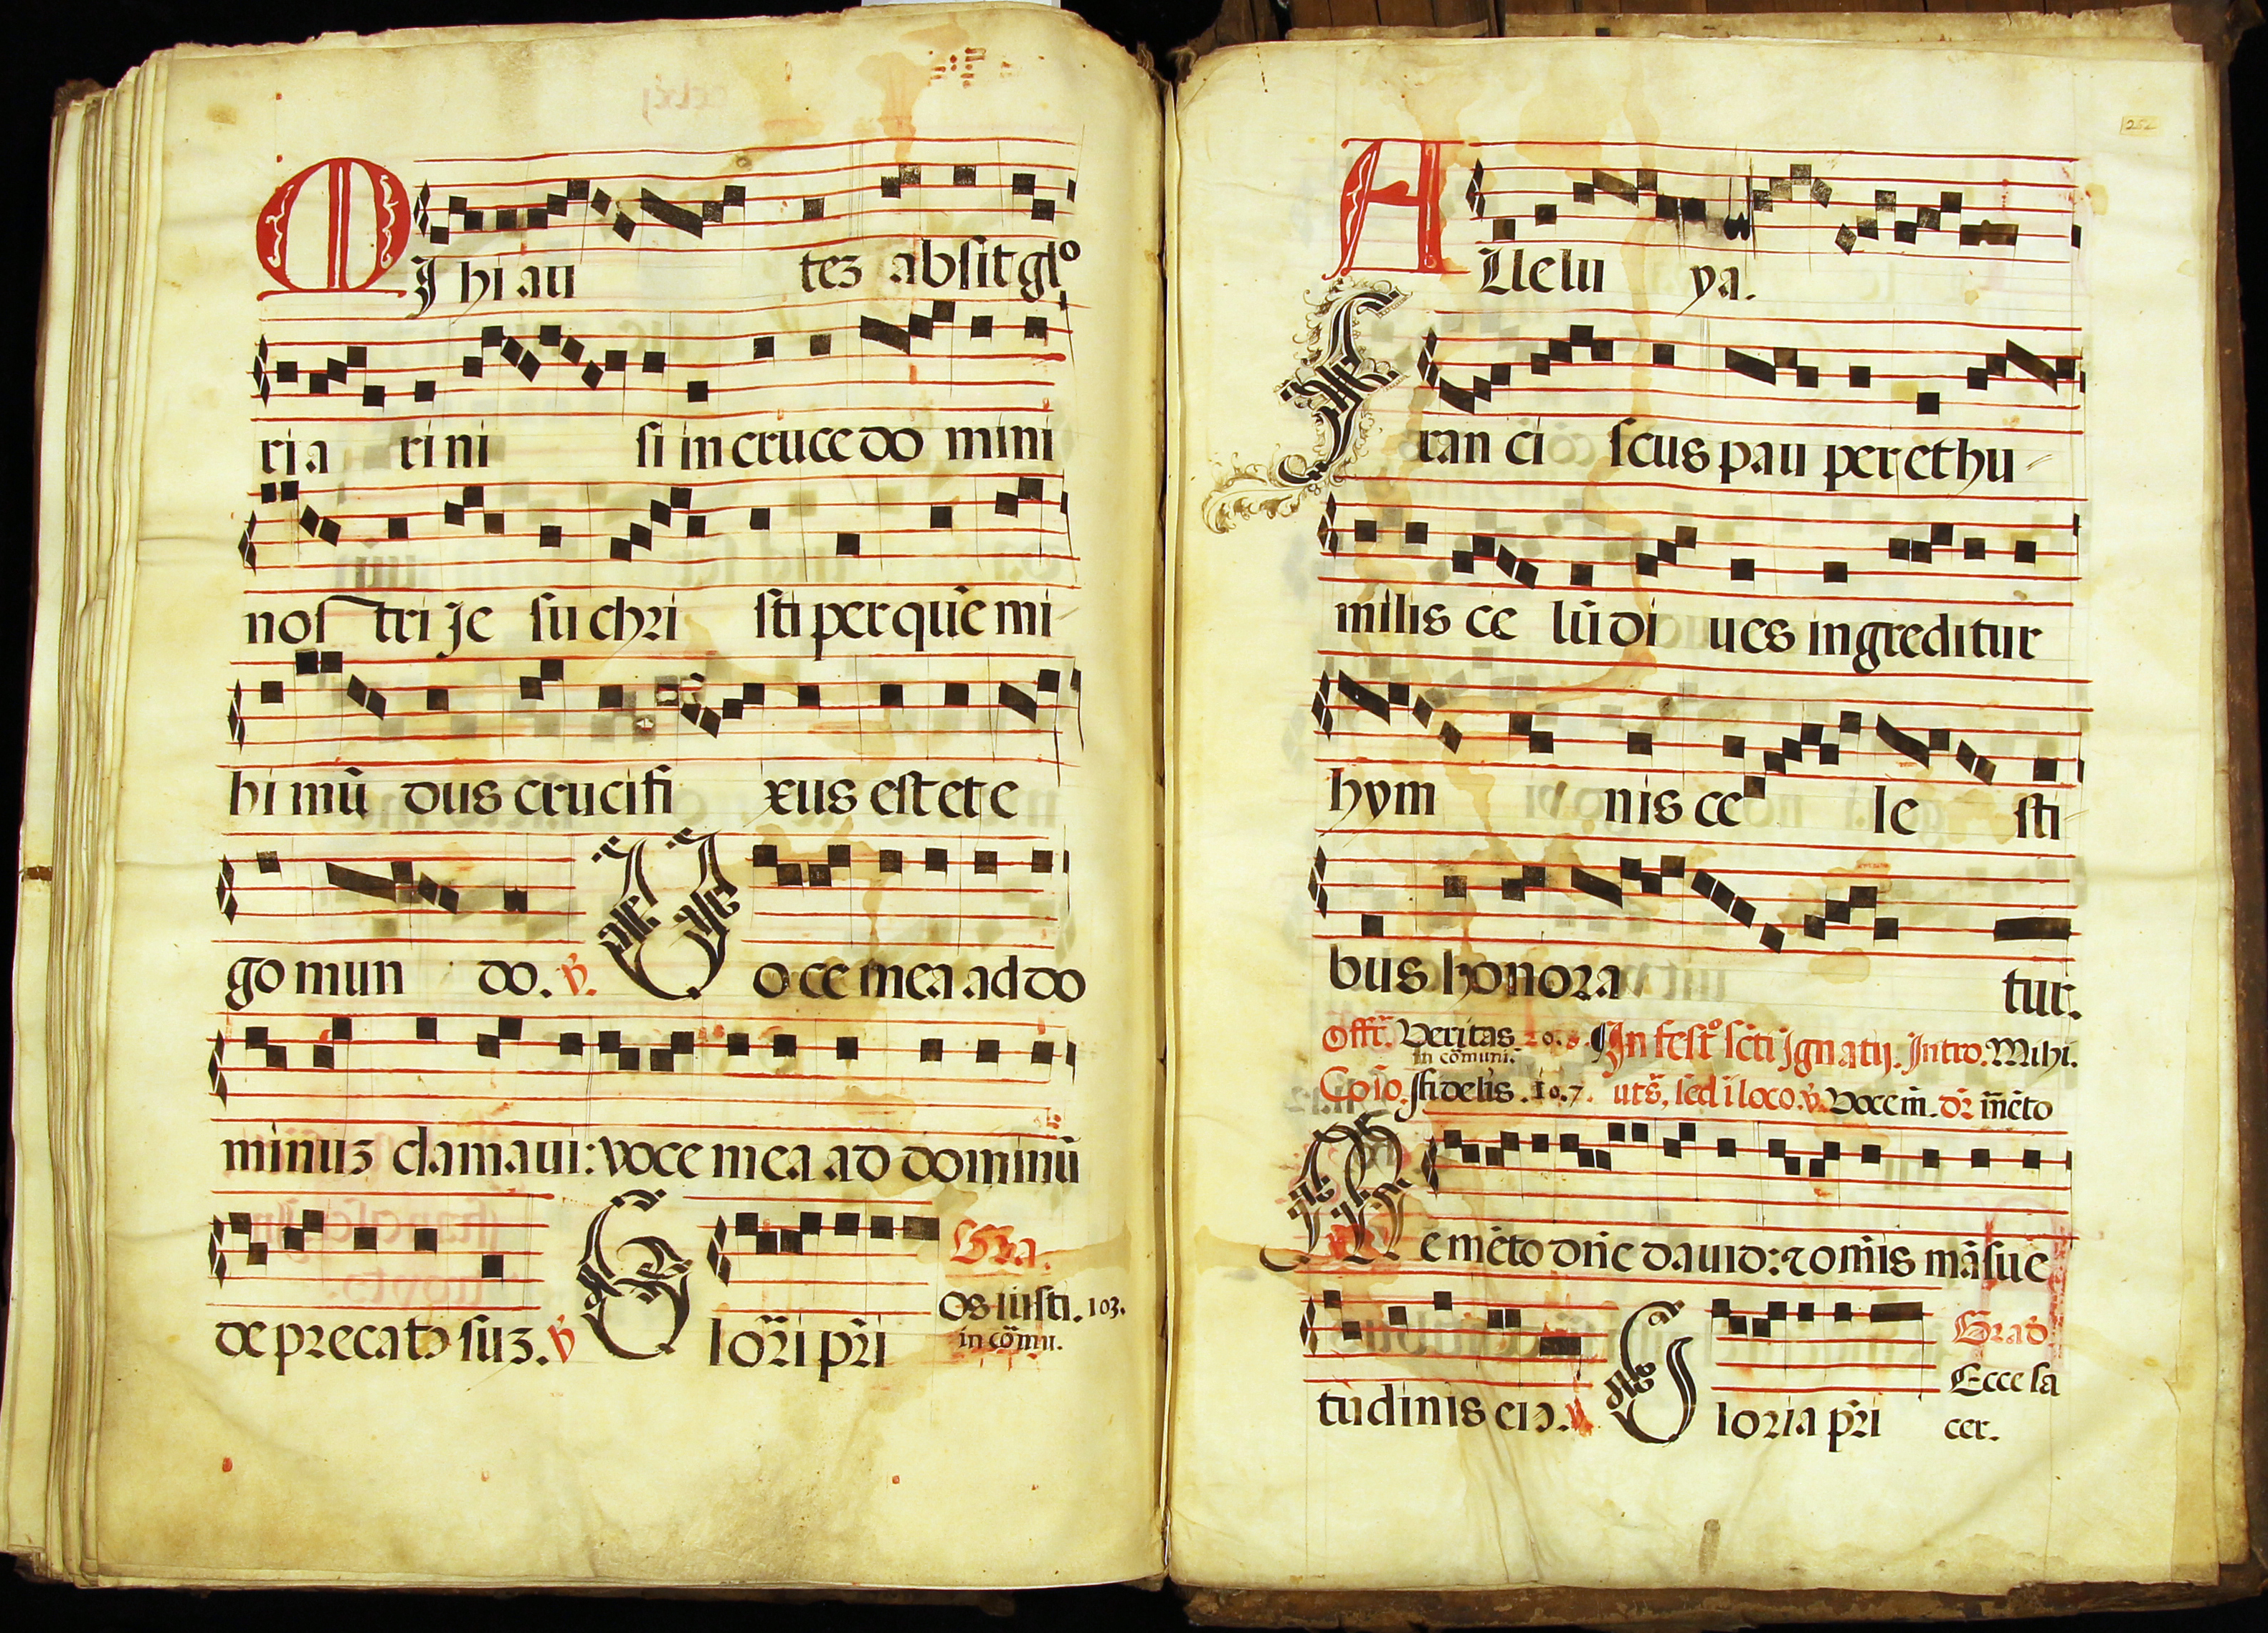 MIhi au teʒ absit glo
ri a ri ni si in cruce do mini
nos tri Je su chri sti per quē mi
hi mū dus cruci fi xus est et e
go mun do. v̄. Uo ce mea ad do
minuʒ clamaui: voce mea ad dominū
deprecatꝰ suʒ. v̄ Glor̄i pr̄i Gra.
Os iusti. 103.
in cōmu.
252
Allelu ya.
Fran ci scus pau per et hu
milis ce lū di ues ingreditur
hym nis ce le sti
bus honora tur.
Offr̄. Veritas 20. In festo sc̄ti Ignatij. Intro. Mihi.
in cōmuni.
Cōio. fidelis. 107. ut s̄, sed ī loco. v̄. Voce m̄. dr̄ mēto
Memēto dn̄e dauid: ⁊ om̄is māsue
tudinis eiꝰ. v̄. Gloria pr̄i Grad
Ecce sa
cer.